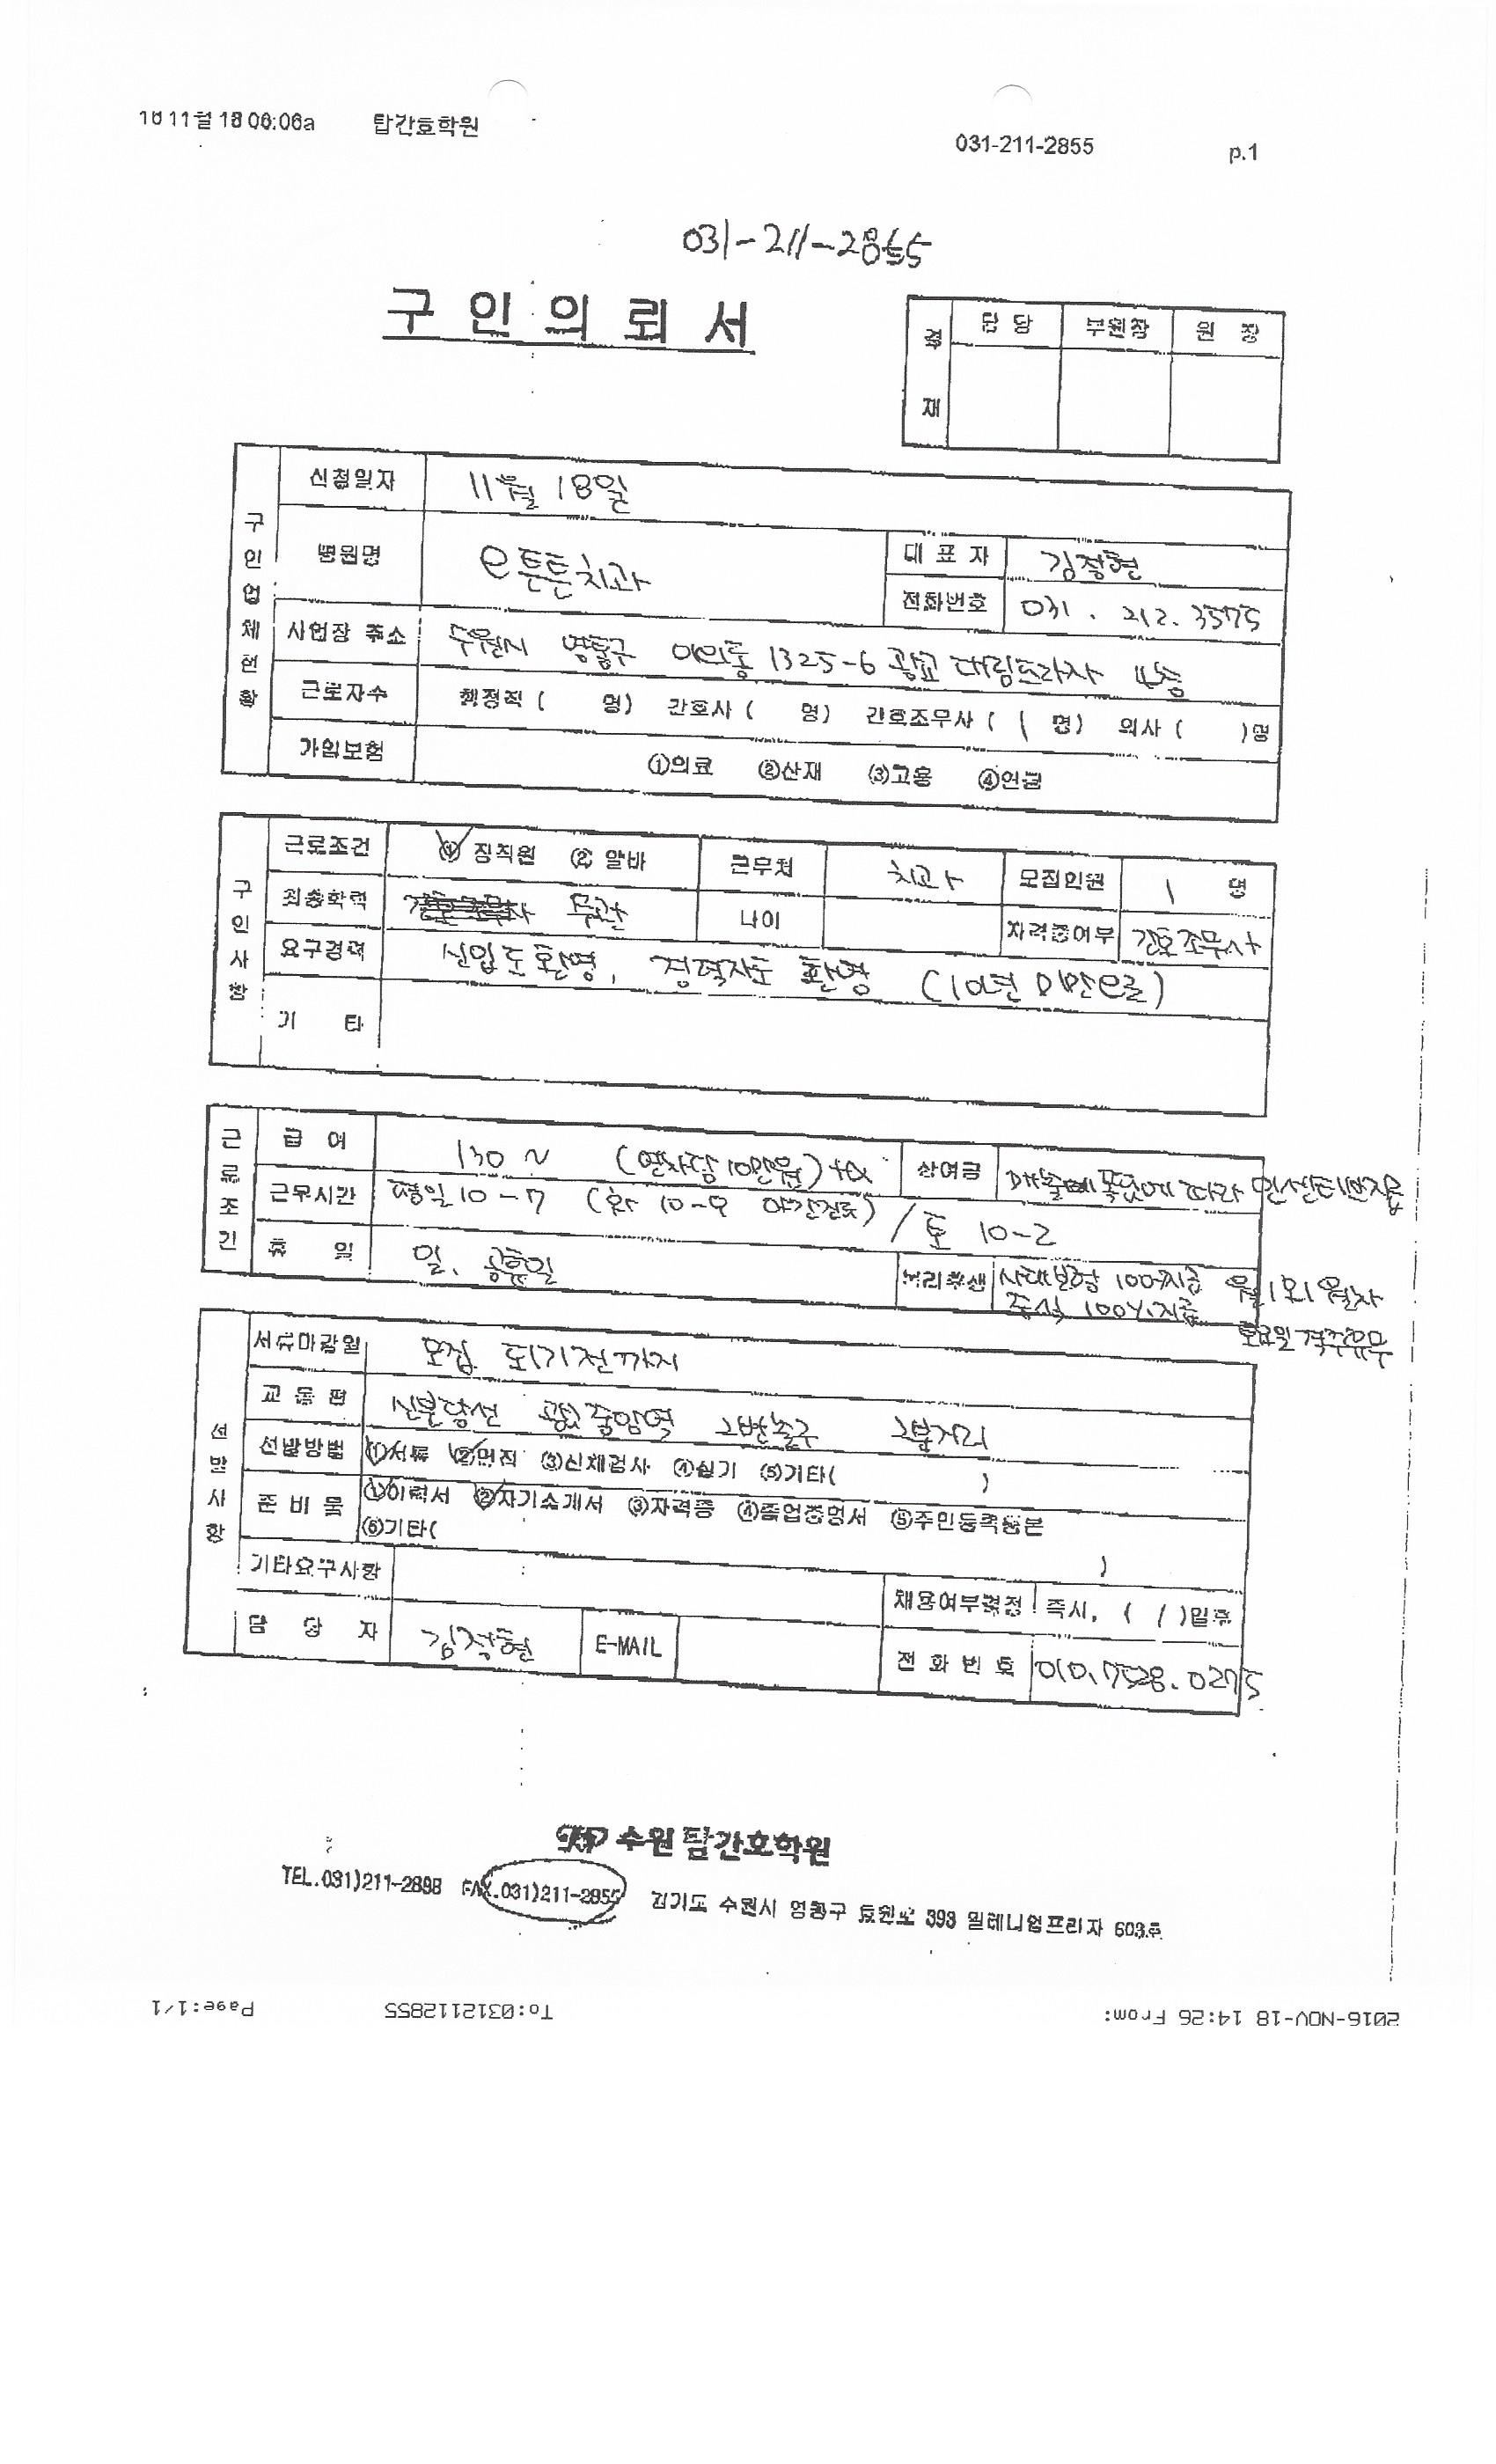 16 11월 18 06:06a 탑간호학원 031-211-2855 p.1
031-211-2855
구인의뢰서
결재 담당 부원장 원장
구인업체현황
신청일자 11월 18일
병원명 e튼튼치과 대표자 김장현
전화번호 031. 212. 3575
사업장 주소 수원시 영통구 이의동 1325-6 광교 대림프라자 4층
근로자수 행정직 ( 명) 간호사 ( 명) 간호조무사 ( 1 명) 의사 ( )명
가입보험 ①의료 ②산재 ③고용 ④연금
구인사항
근로조건 ① 정직원 ② 알바 근무처 치과 모집인원 1 명
최종학력 무관 나이 자격증여부 간호조무사
요구경력 신입도 환영, 경력자도 환영 (10년 미만으로)
기 타
근로조건
급 여 130 ~ (연차당 10만원) +α 상여금 매출에 따라 인센티브지급
근무시간 평일 10-7 (화 10-9 야간진료) / 토 10-2
휴 일 일, 공휴일 복리후생 사대보험 100%지급 월1회 월차
중식 100%지급
토요일 격주휴무
선발사항
서류마감일 모집 되기전까지
교통편 신분당선 광교중앙역 2번출구 2분거리
선발방법 ①서류 ②면접 ③신체검사 ④실기 ⑤기타( )
준비물 ①이력서 ②자기소개서 ③자격증 ④졸업증명서 ⑤주민등록등본
⑥기타( )
기타요구사항 채용여부결정 즉시, ( / )일후
담 당 자 E-MAIL 전화번호 010.7528.0275
수원 탑간호학원
TEL.031)211-2898 FAX.031)211-2855 경기도 수원시 영통구 효원로 393 밀레니엄프라자 603호
2016-NOV-18 14:26 From: To:0312112855 Page:1/1